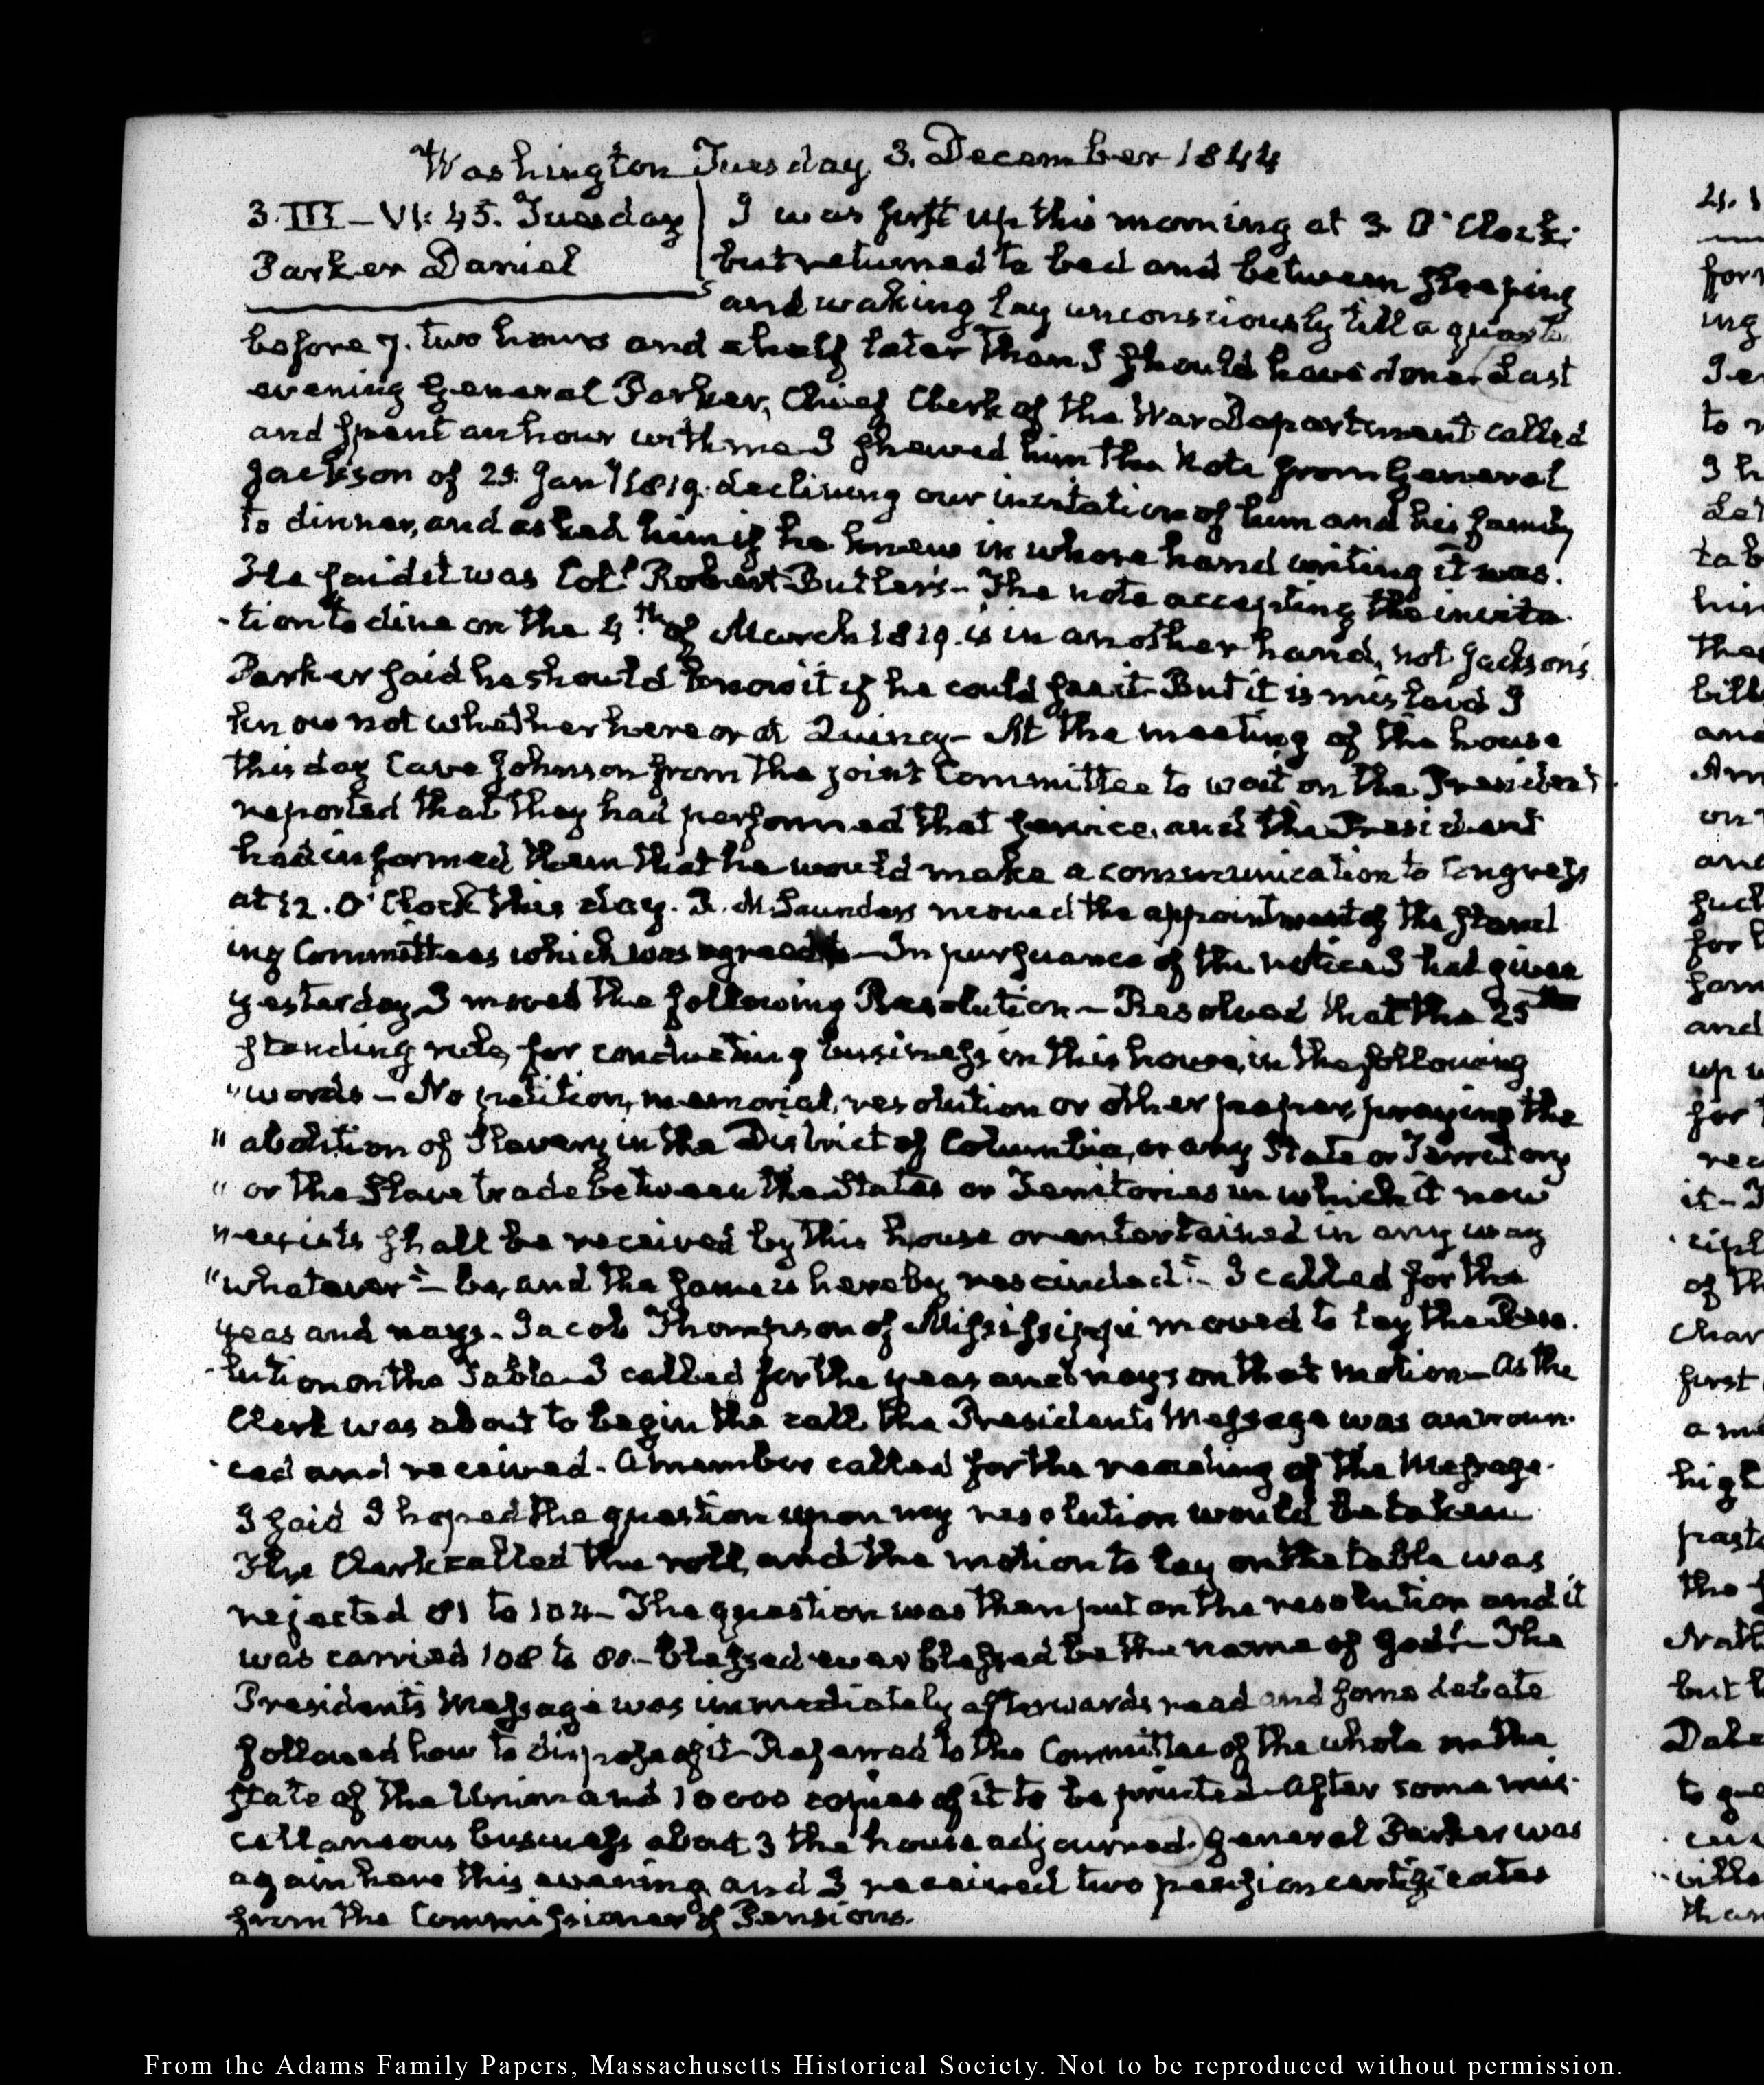 Washington Tuesday 3. December 1844
3. III – VI: 45. Tuesday
Parker Daniel
I was first up this morning at 3. O'Clock;
but returned to bed and between sleeping
and waking lay unconsciously till a quarter
before 7. two hours and a half later than I should have done. Last
evening General Parker, Chief Clerk of the War Department called
and spent an hour with me I shewed him the Note from General
Jackson of 25. Jany 1819. declining our invitation of him and his family
to dinner, and asked him if he knew in whose hand writing it was.
He said it was Coll. Robert Butler's – The note accepting the invita-
-tion to dine on the 4th. of March 1819. is in another hand, not Jackson's
Parker said he should know it if he could see it – But it is mislaid I
know not whether here or at Quincy – At the meeting of the house
this day Cave Johnson from the joint Committee to wait on the President
reported that they had performed that service, and the President
had informed them that he would make a communication to Congress
at 12. O'Clock this day. R. M. Saunders moved the appointment of the stand-
ing Committees which was agreed to – In pursuance of the notice I had given
yesterday I moved the following Resolution – Resolved that the 25th
standing rule, for conducting business in this house, in the following
"words – No petition, memorial, resolution or other paper, praying the
" abolition of Slavery in the District of Columbia, or any State or Territory
" or the Slave trade between the States or Territories in which it now
" exists shall be received by this house or entertained in any way
"whatever" – be, and the same is hereby rescinded". – I called for the
yeas and nays. Jacob Thompson of Mississippi moved to lay the Reso-
-lution on the Table – I called for the yeas and nays on that motion – As the
Clerk was about to begin the call, the President's Message was announ-
-ced and received – A member called for the reading of the Message.
I said I hoped the question upon my resolution would be taken
The Clerk called the roll, and the motion to lay on the table was
rejected 81 to 104 – The question was then put on the resolution and it
was carried 108 to 80. – blessed ever blessed be the name of God! – The
President's Message was immediately afterwards read and some debate
followed how to dispose of it – Referred to the Committee of the whole on the
state of the Union and 10000 copies of it to be printed – After some mis-
cellaneous business about 3 the house adjourned. General Parker was
again here this evening and I received two pension certificates
from the Commissioner of Pensions.
21. 
From the Adams Family Papers, Massachusetts Historical Society. Not to be reproduced without permission.